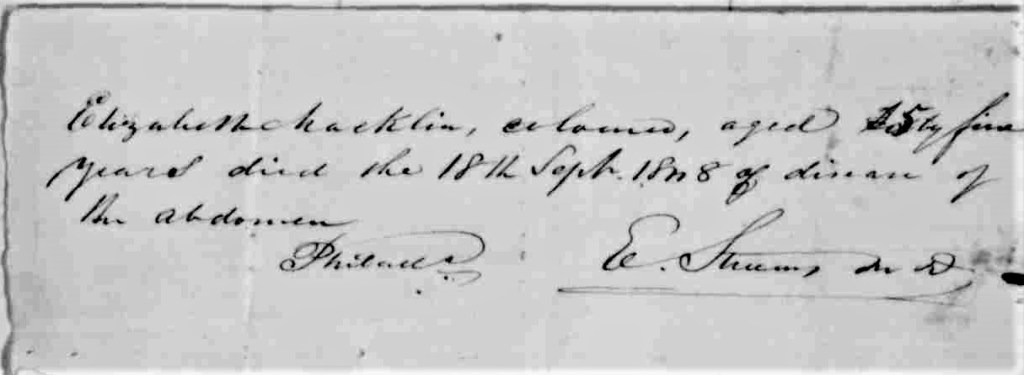 Elizabeth Macklin, coloured, aged five
years died the 18th Sept. 1848 of disease of
the abdomen
Philad<sup>a</sup> E. M D